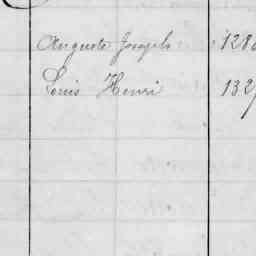 Auguste Joseph 128
Louis Henri 132